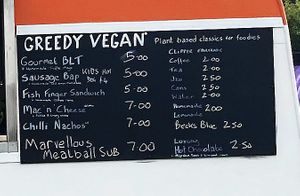 GREEDY VEGAN
Plant based classics for foodies
Gourmet BLT 5.00
Sausage Bap 5.00
KIDS
Fish Finger Sandwich 5.00
Mac n Cheese 7.00
Chilli Nachos 7.00
Marvellous
Meatball SUB 7.00
Coffee 2.00
Tea 2.00
Jaz 2.00
Cans 2.00
Water 2.00
Lemonade 2.00
Lemonade
Becks Blue 2.50
Luxury
Hot Chocolate 2.50